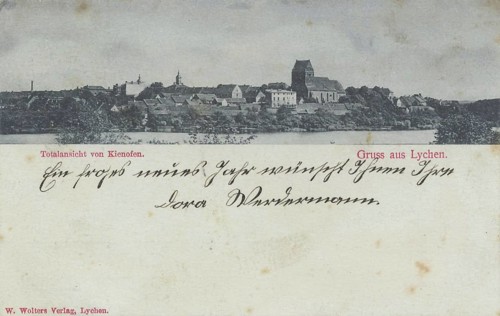 Totalansicht von Kienofen.
Gruss aus Lychen.
Ein frohes neues Jahr wünscht Ihnen Ihre
Dora Werdermann.
W. Wolters Verlag, Lychen.